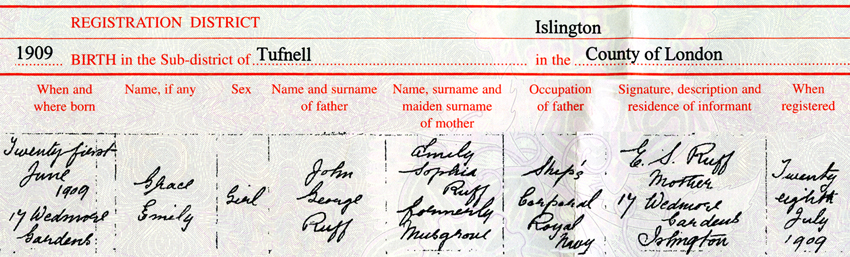 REGISTRATION DISTRICT Islington
1909 BIRTH in the Sub-district of Tufnell in the County of London
When and where born
Name, if any
Sex
Name and surname of father
Name, surname and maiden surname of mother
Occupation of father
Signature, description and residence of informant
When registered
Twenty first
June
1909
17 Wedmore
Gardens
Grace
Emily
Girl
John
George
Ruff
Emily
Sophia
Ruff
formerly
Musgrove
Ship's
Corporal
Royal
Navy
E. S. Ruff
Mother
17 Wedmore
Gardens
Islington
Twenty
eighth
July
1909